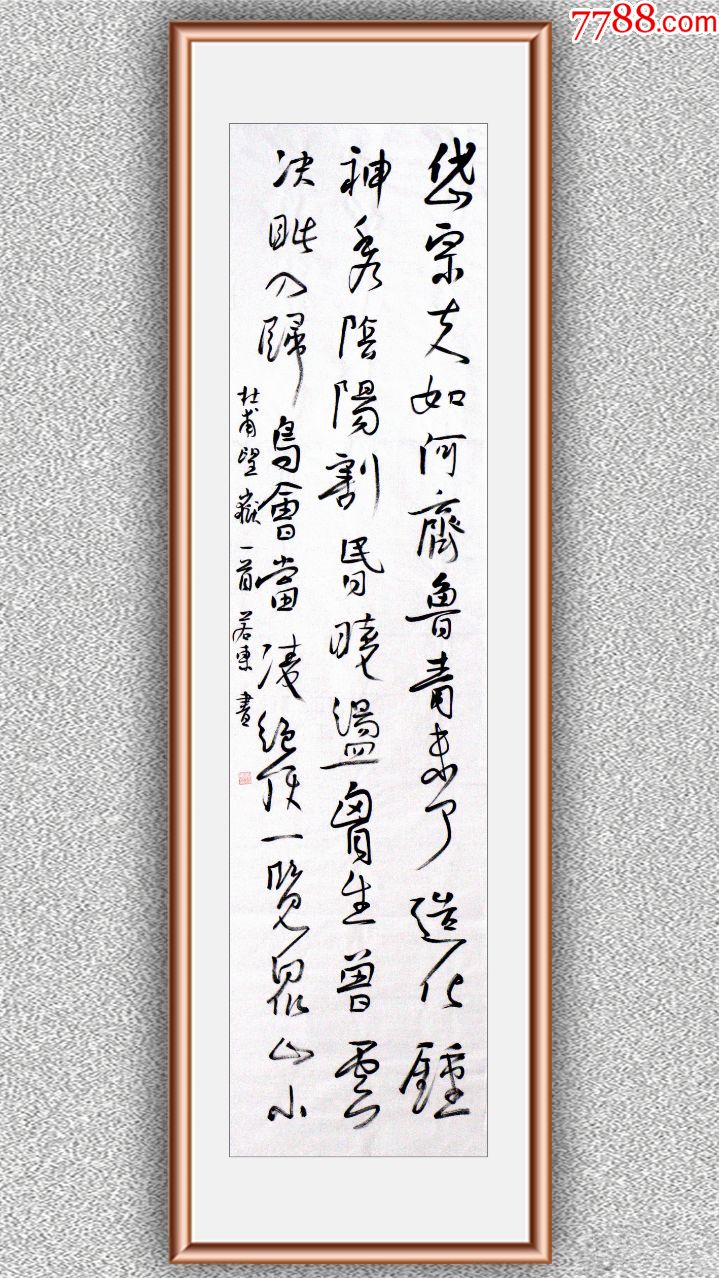 7788.com
岱宗夫如何齊魯青未了造化鍾
神秀陰陽割昏曉盪胸生曾雲
决眦入歸鳥會當凌絕頂一覽眾山小
杜甫望嶽一首 若東書